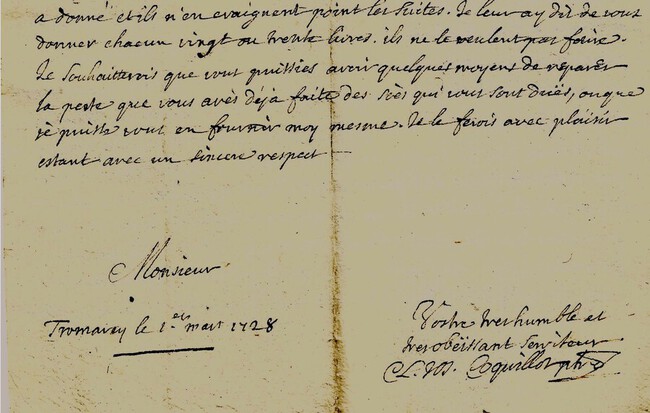 a donné et ils n'en craignent point les suites. Je leur ay dit de vous
donner chacun vingt ou trente livres. ils ne le veulent pas faire.
Je souhaitterois que vous puissiés avoir quelques moyens de reparer
la perte que vous avés déja faite des qui vous sont duës, ou que
je puisse vous en fournir moy mesme. Je le ferois avec plaisir
estant avec un sincere respect
Monsieur
Tromarey le 1er mars 1728
Vostre tres humble et
tres obeissant serviteur
Coquillot